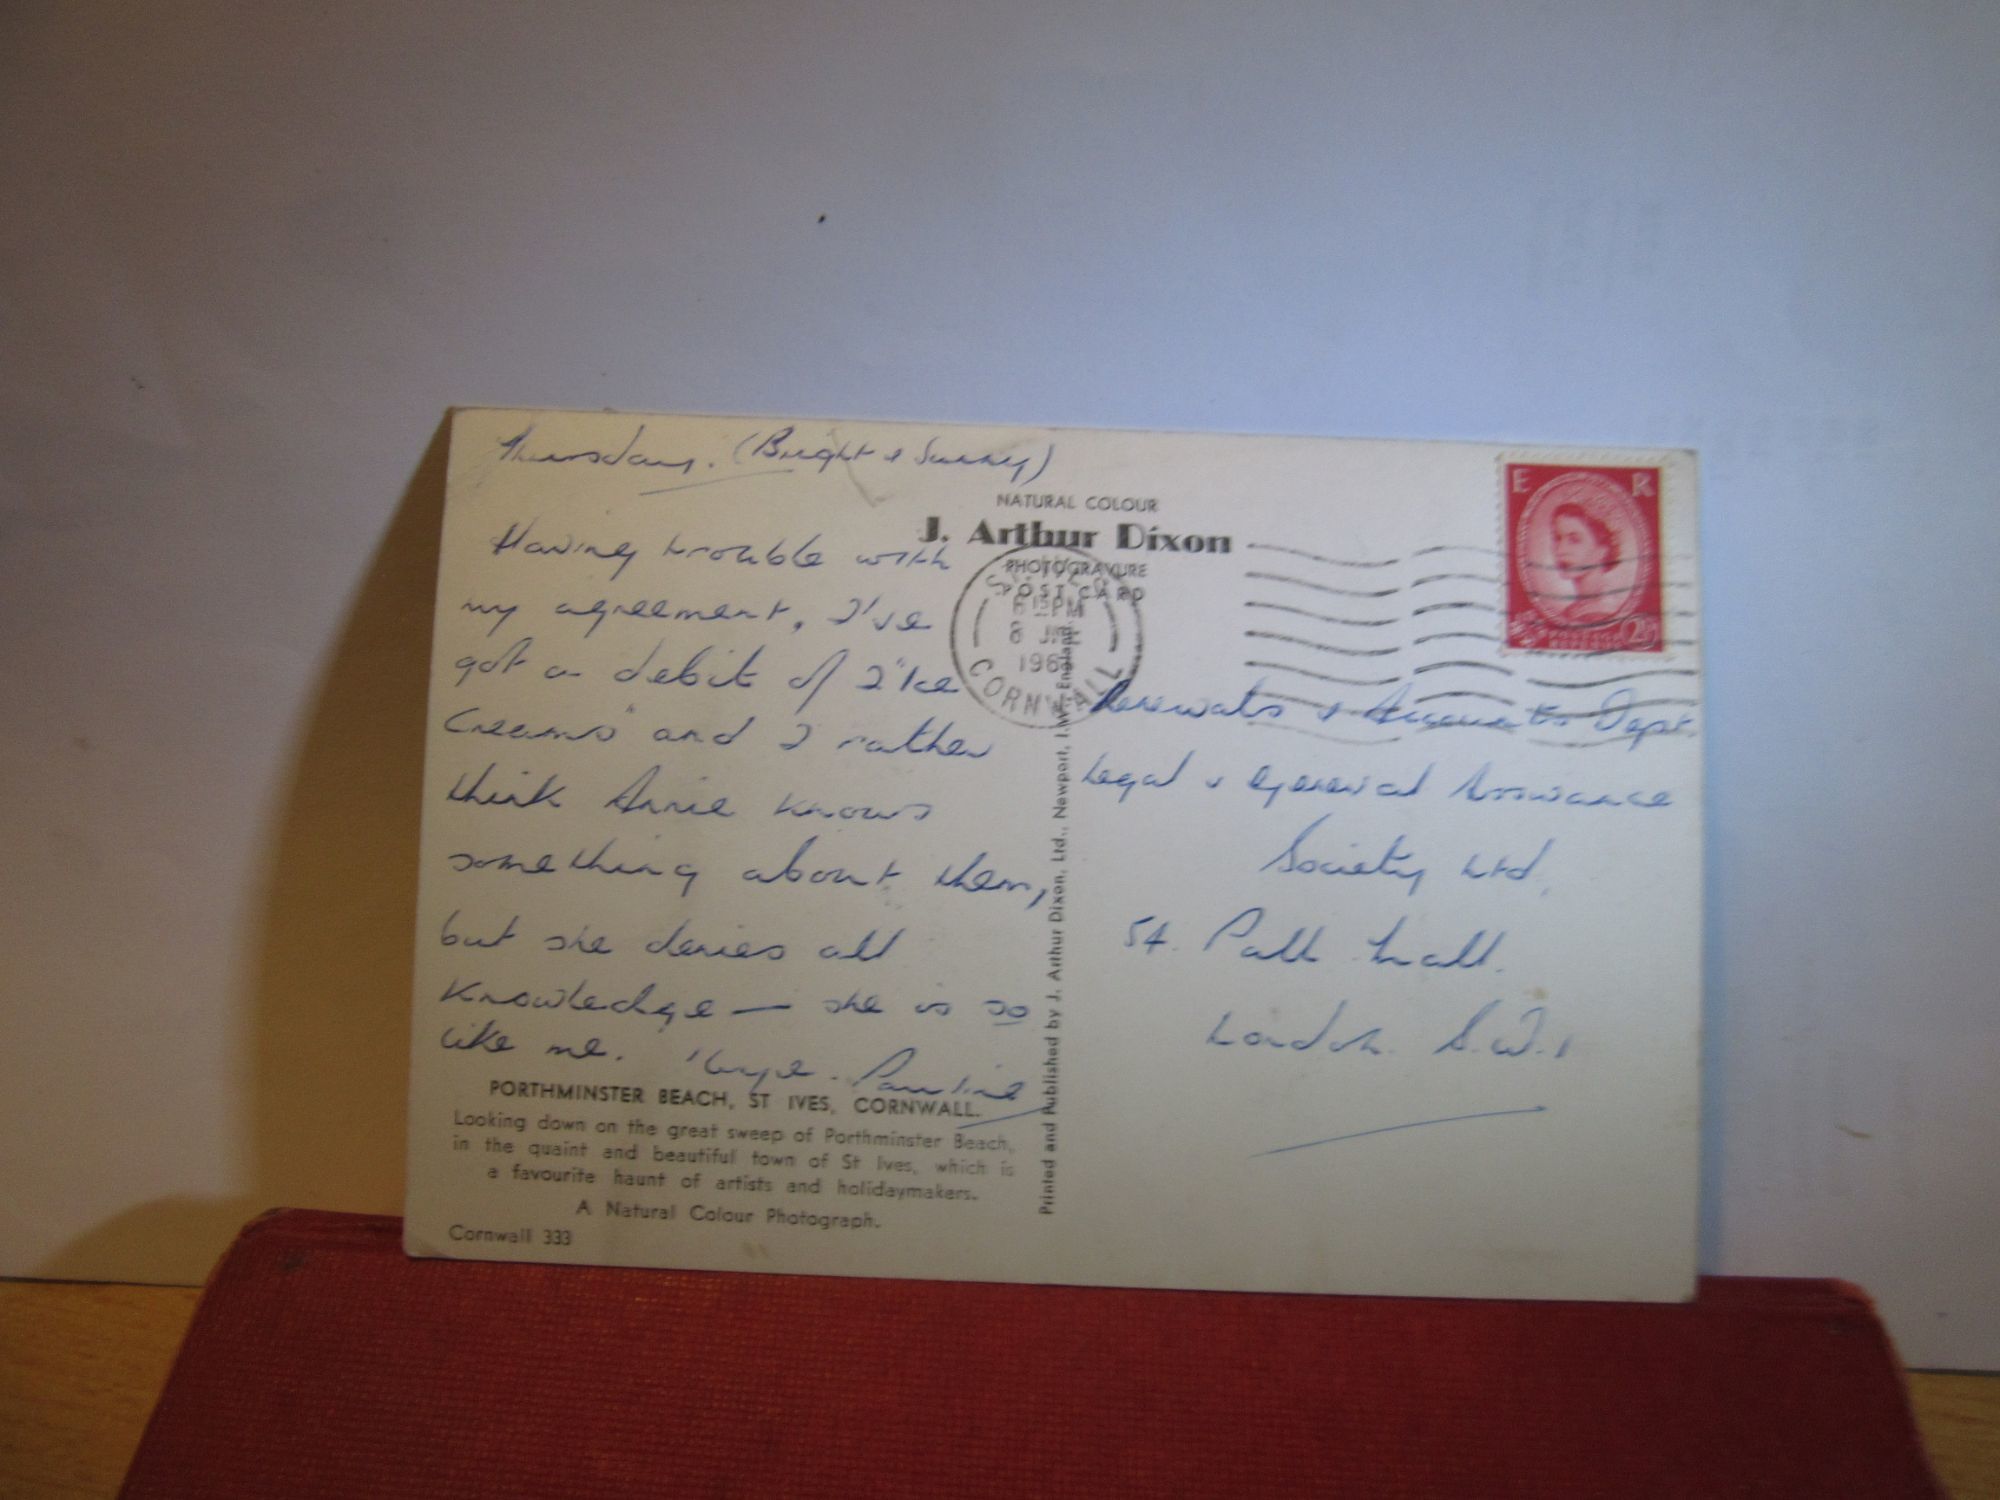 Thursday. (Bright & Sunny)
Having trouble with
my agreement, I've
got a debit of 2 "Ice
Creams" and I rather
think Annie knows
something about them,
but she denies all
knowledge — she is so
like me.
Pauline
PORTHMINSTER BEACH, ST IVES, CORNWALL.
Looking down on the great sweep of Porthminster Beach,
in the quaint and beautiful town of St Ives, which is
a favourite haunt of artists and holidaymakers.
A Natural Colour Photograph.
Cornwall 333
NATURAL COLOUR
J. Arthur Dixon
PHOTOGRAVURE
POST CARD
ST. IVES
6 15 PM
8 JNE
196
CORNWALL
Printed and Published by J. Arthur Dixon, Ltd., Newport, I.W., England.
E R
POSTAGE
REVENUE
2½D
Renewals & Accounts Dept.
Legal & General Assurance
Society Ltd.
54. Pall Mall.
London. S.W.1